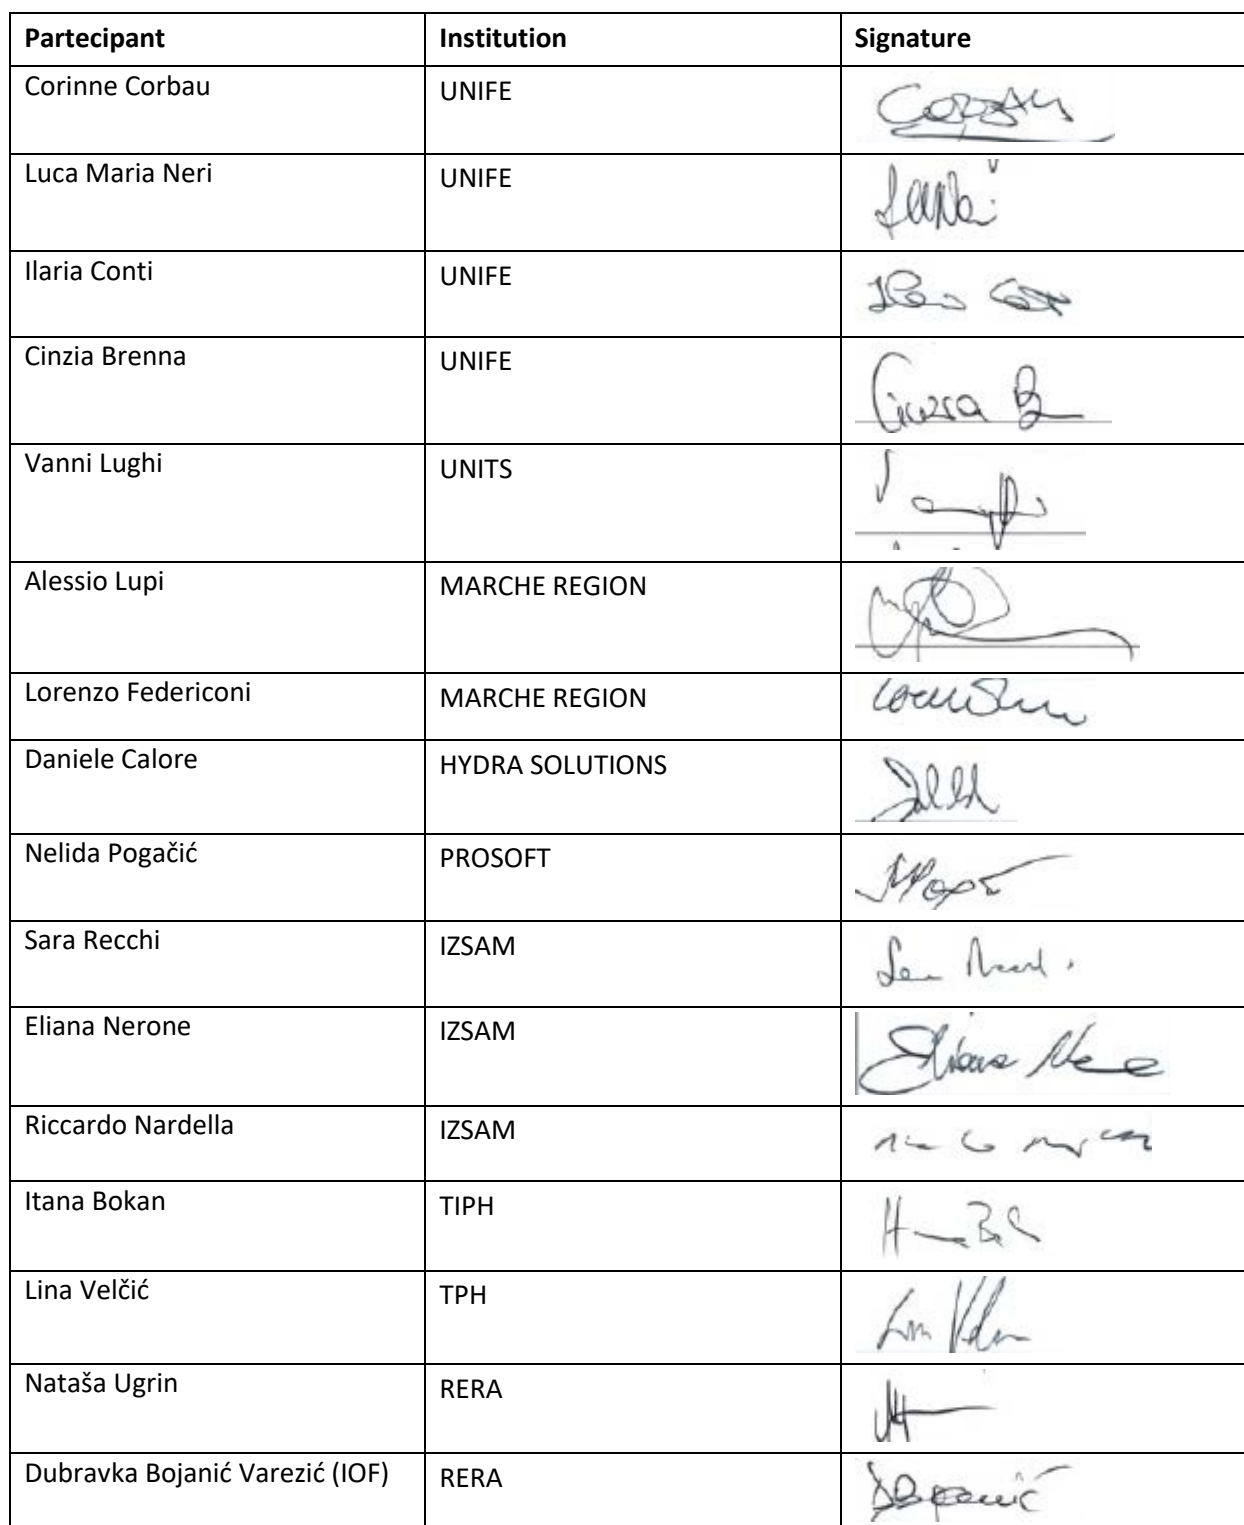 Partecipant Institution Signature
Corinne Corbau UNIFE CORBAU
Luca Maria Neri UNIFE
Ilaria Conti UNIFE
Cinzia Brenna UNIFE Cinzia B
Vanni Lughi UNITS
Alessio Lupi MARCHE REGION
Lorenzo Federiconi MARCHE REGION
Daniele Calore HYDRA SOLUTIONS
Nelida Pogačić PROSOFT
Sara Recchi IZSAM
Eliana Nerone IZSAM Eliana
Riccardo Nardella IZSAM
Itana Bokan TIPH
Lina Velčić TPH
Nataša Ugrin RERA
Dubravka Bojanić Varezić (IOF) RERA